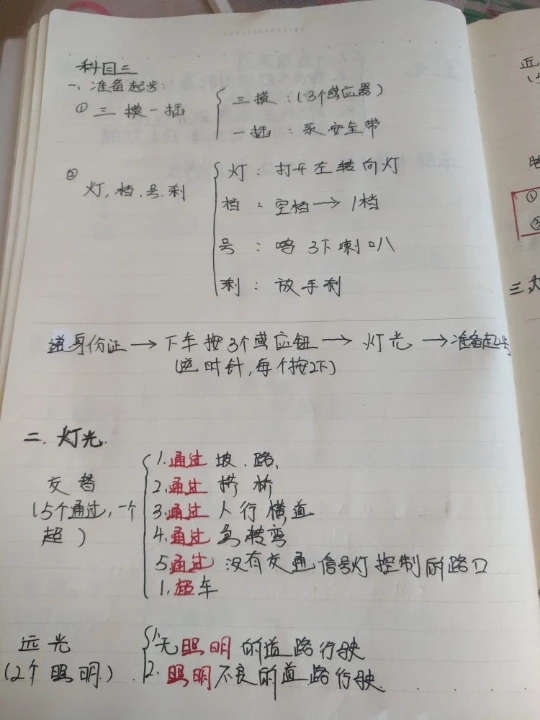 科目三
一、准备起步:
① 三摸一插
三摸:(3个感应器)
一插:系安全带
② 灯,档.号.刹
灯:打开左转向灯
档:空档→1档
号:鸣3下喇叭
刹:放手刹
递身份证→下车按3个感应钮→灯光→准备起步
(逆时针,每个按2下)
二.灯光.
交替
(5个通过,一个超)
1.通过 坡.路、
2.通过 拱桥
3.通过 人行横道
4.通过 急转弯
5通过 没有交通信号灯控制的路口
1.超车
远光
(2个照明)
1.无照明的道路行驶
2.照明不良的道路行驶
近
①
②
三.